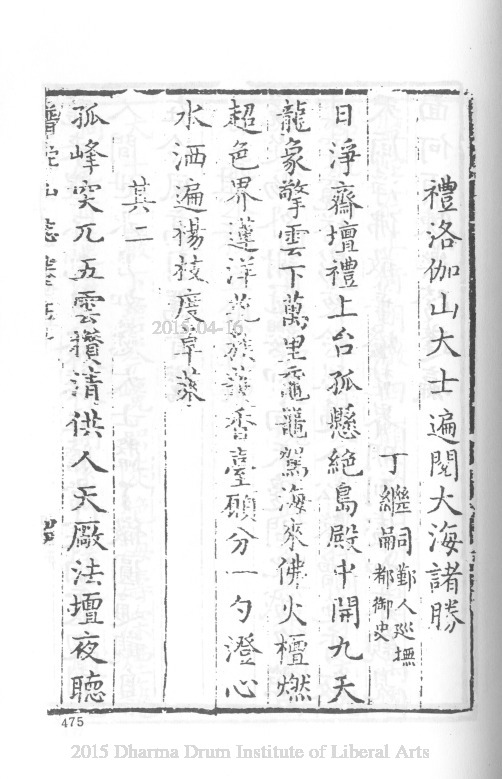 禮洛伽山大士遍閱大海諸勝
丁繼嗣 鄞人巡撫都御史
日淨齋壇禮上台孤懸絶島殿中開九天
龍象擎雲下萬里黿鼉駕海來佛火檀燃
超色界蓮洋花簇藹香臺願分一勺澄心
水洒遍楊枝度草萊
其二
孤峰突兀五雲攢清供人天厰法壇夜聽
475
2015-04-16
2015 Dharma Drum Institute of Liberal Arts